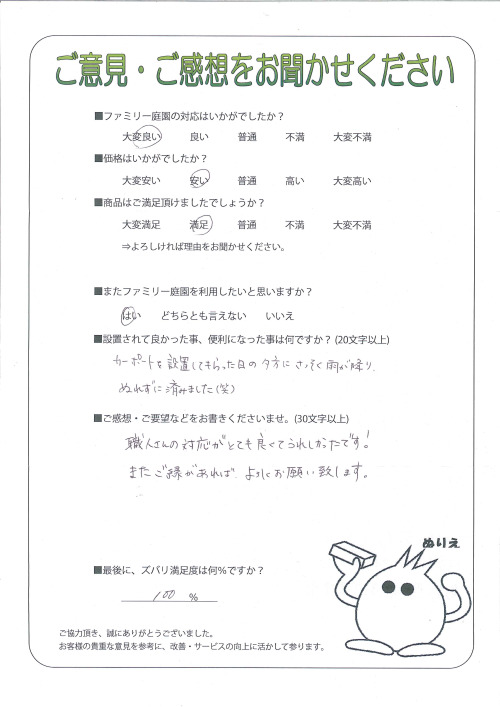 ご意見・ご感想をお聞かせください
■ファミリー庭園の対応はいかがでしたか？
大変良い 良い 普通 不満 大変不満
■価格はいかがでしたか？
大変安い 安い 普通 高い 大変高い
■商品はご満足頂けましたでしょうか？
大変満足 満足 普通 不満 大変不満
⇒よろしければ理由をお聞かせください。
■またファミリー庭園を利用したいと思いますか？
はい どちらとも言えない いいえ
■設置されて良かった事、便利になった事は何ですか？(20文字以上)
カーポートを設置してもらった日の夕方にさっそく雨が降り、
ぬれずに済みました(笑)
■ご感想・ご要望などをお書きくださいませ。(30文字以上)
職人さんの対応がとても良くてうれしかったです！
またご縁があれば、よろしくお願い致します。
ぬりえ
■最後に、ズバリ満足度は何％ですか？
100 ％
ご協力頂き、誠にありがとうございました。
お客様の貴重な意見を参考に、改善・サービスの向上に活かして参ります。